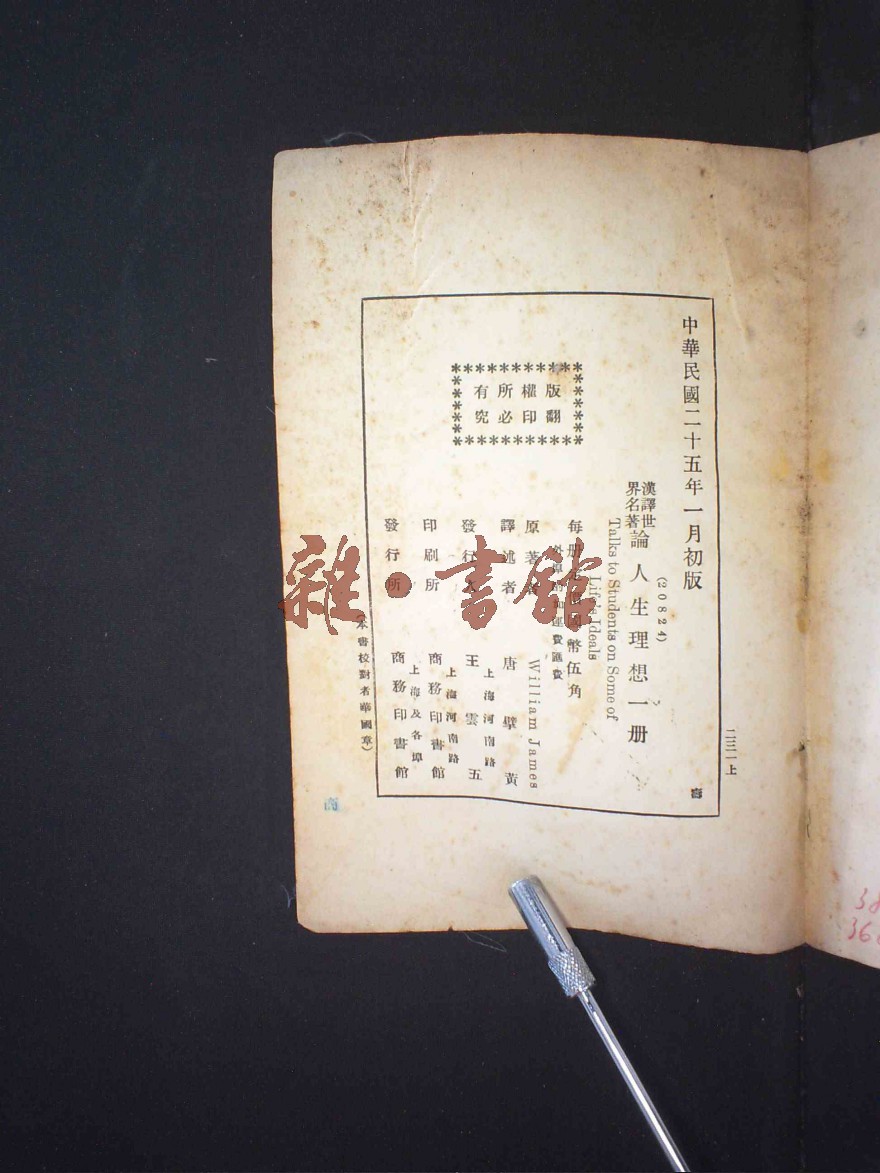 中華民國二十五年一月初版
二三一上
(20824)
漢譯世界名著 論人生理想一册
Talks to Students on Some of
Life's Ideals
每册
國幣伍角
運費匯費
版權所有
翻印必究
原著者 William James
譯述者 唐擘黃
發行人 王雲五
上海河南路
印刷所 商務印書館
上海河南路
發行所 商務印書館
上海及各埠
(本書校對者華國章)
雜·書館